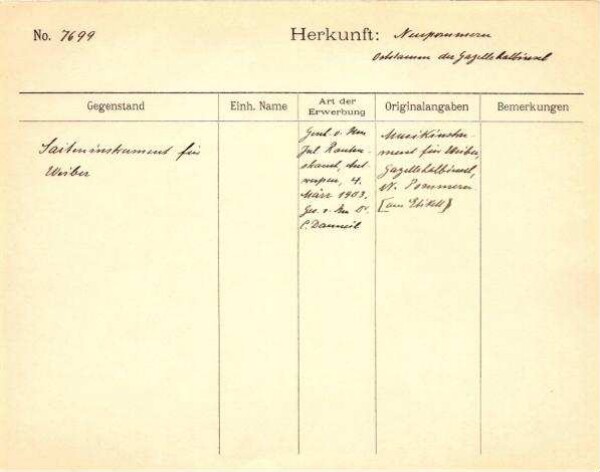 No. 7699
Herkunft: Neupommern
Oststamm der Gazellehalbinsel
Gegenstand
Einh. Name
Art der Erwerbung
Originalangaben
Bemerkungen
Saiteninstrument für
Weiber
Jul
März 1903.
Musikinstru-
ment für Weiber,
Gazellehalbinsel,
N. Pommern
(am Etikett)